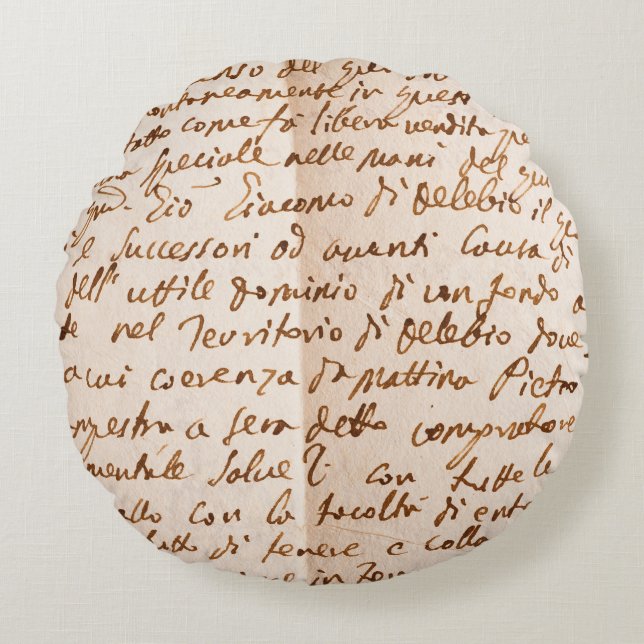 del
in quest
atto come fà libera vendita
speciale nelle mani del
qm. Gio Giacomo di Delebio il
i e successori od aventi causa di
dell' uttile dominio di un fondo a
te nel Territorio di Delebio dove
a cui coerenza da mattina Pietro
a sera detto compratore
salue con tutte le
con la facoltà di ent
di tenere e